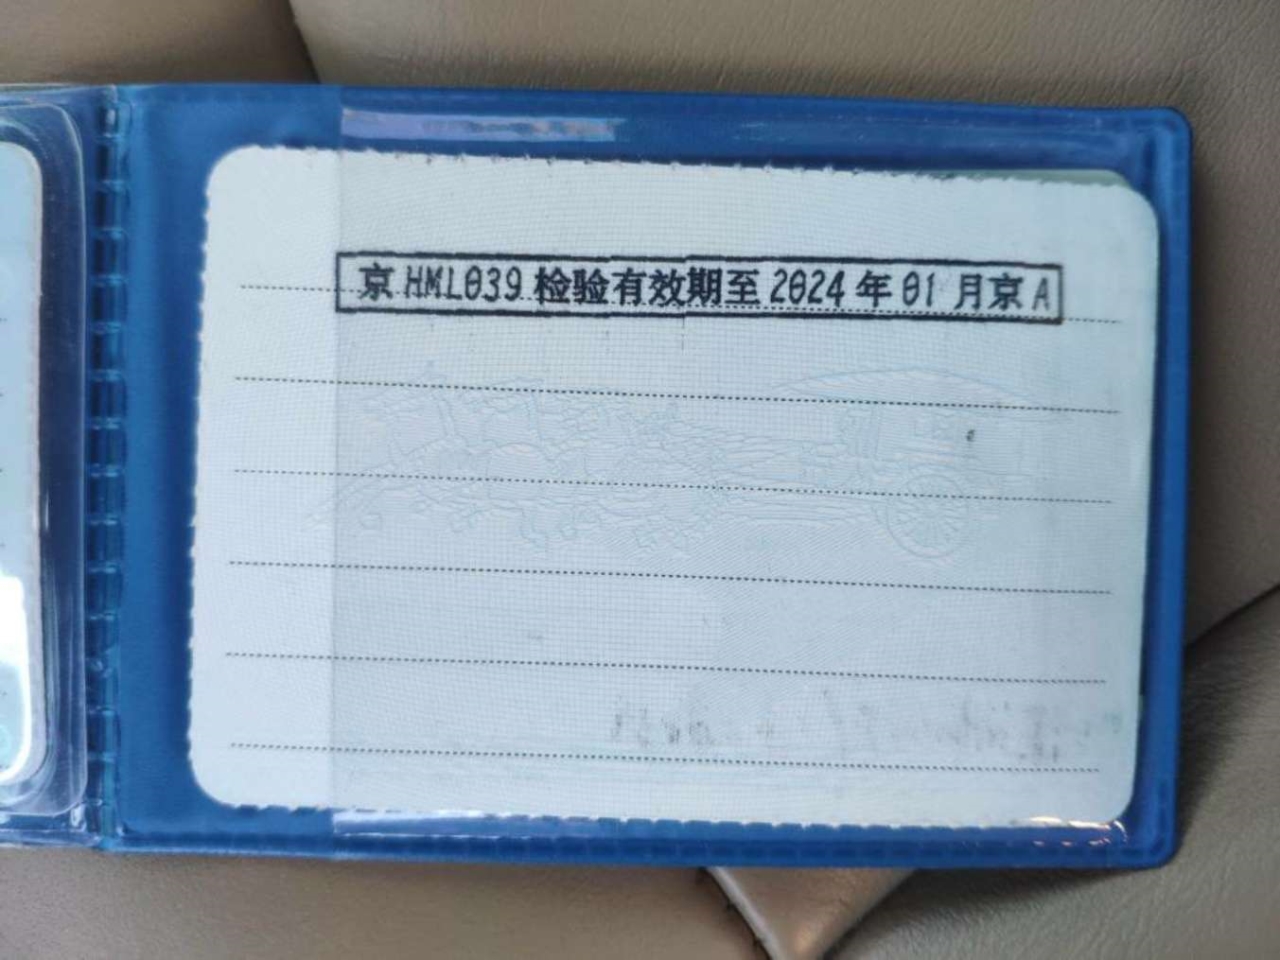 京HML039 检验有效期至2024年01月京A